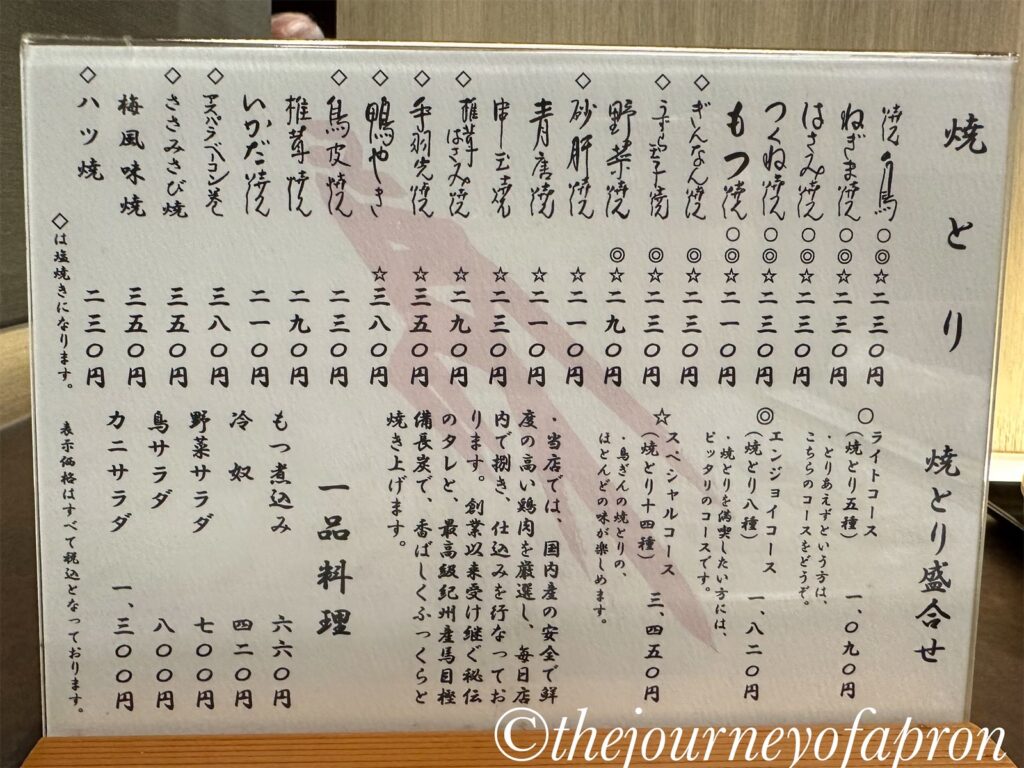 焼とり
焼鳥 ○◎☆二三〇円
ねぎま焼 ○◎☆二三〇円
はさみ焼 ○◎☆二三〇円
つくね焼 ○◎☆二三〇円
もつ焼 ○◎☆二一〇円
◇ぎんなん焼 ◎☆二三〇円
◇うずら玉子焼 ◎☆二三〇円
野菜焼 ◎☆二九〇円
◇砂肝焼 ☆二一〇円
青唐焼 ☆二一〇円
串玉焼 ☆二三〇円
◇椎茸はさみ焼 ☆二九〇円
◇手羽先焼 ☆三五〇円
◇鴨やき ☆三八〇円
◇鳥皮焼 二三〇円
椎茸焼 二九〇円
いかだ焼 二一〇円
◇アスパラベーコン巻 三八〇円
◇ささみさび焼 三五〇円
梅風味焼 三五〇円
◇ハツ焼 二三〇円
◇は塩焼きになります。
焼とり盛合せ
○ライトコース
(焼とり五種) 一、〇九〇円
・とりあえずという方は、
こちらのコースをどうぞ。
◎エンジョイコース
(焼とり八種) 一、八二〇円
・焼とりを満喫したい方には、
ピッタリのコースです。
☆スペシャルコース
(焼とり十四種) 三、四五〇円
・鳥ぎんの焼とりの、
ほとんどの味が楽しめます。
・当店では、国内産の安全で鮮
度の高い鶏肉を厳選し、毎日店
内で捌き、仕込みを行なってお
ります。創業以来受け継ぐ秘伝
のタレと、最高級紀州産馬目樫
備長炭で、香ばしくふっくらと
焼き上げます。
一品料理
もつ煮込み 六六〇円
冷奴 四二〇円
野菜サラダ 七〇〇円
鳥サラダ 八〇〇円
カニサラダ 一、三〇〇円
表示価格はすべて税込となっております。
©thejourneyofapron